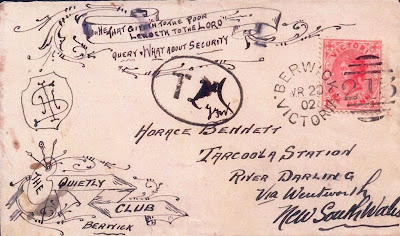 "He that giveth to the poor
Lendeth to the Lord"
Query. What about Security
T
VICTORIA
BERWICK
20
02
VICTORIA
Horace Bennett
Tarcoola Station
River Darling
Via Wentworth
New South Wales
THE
QUIETLY
CLUB
BERWICK